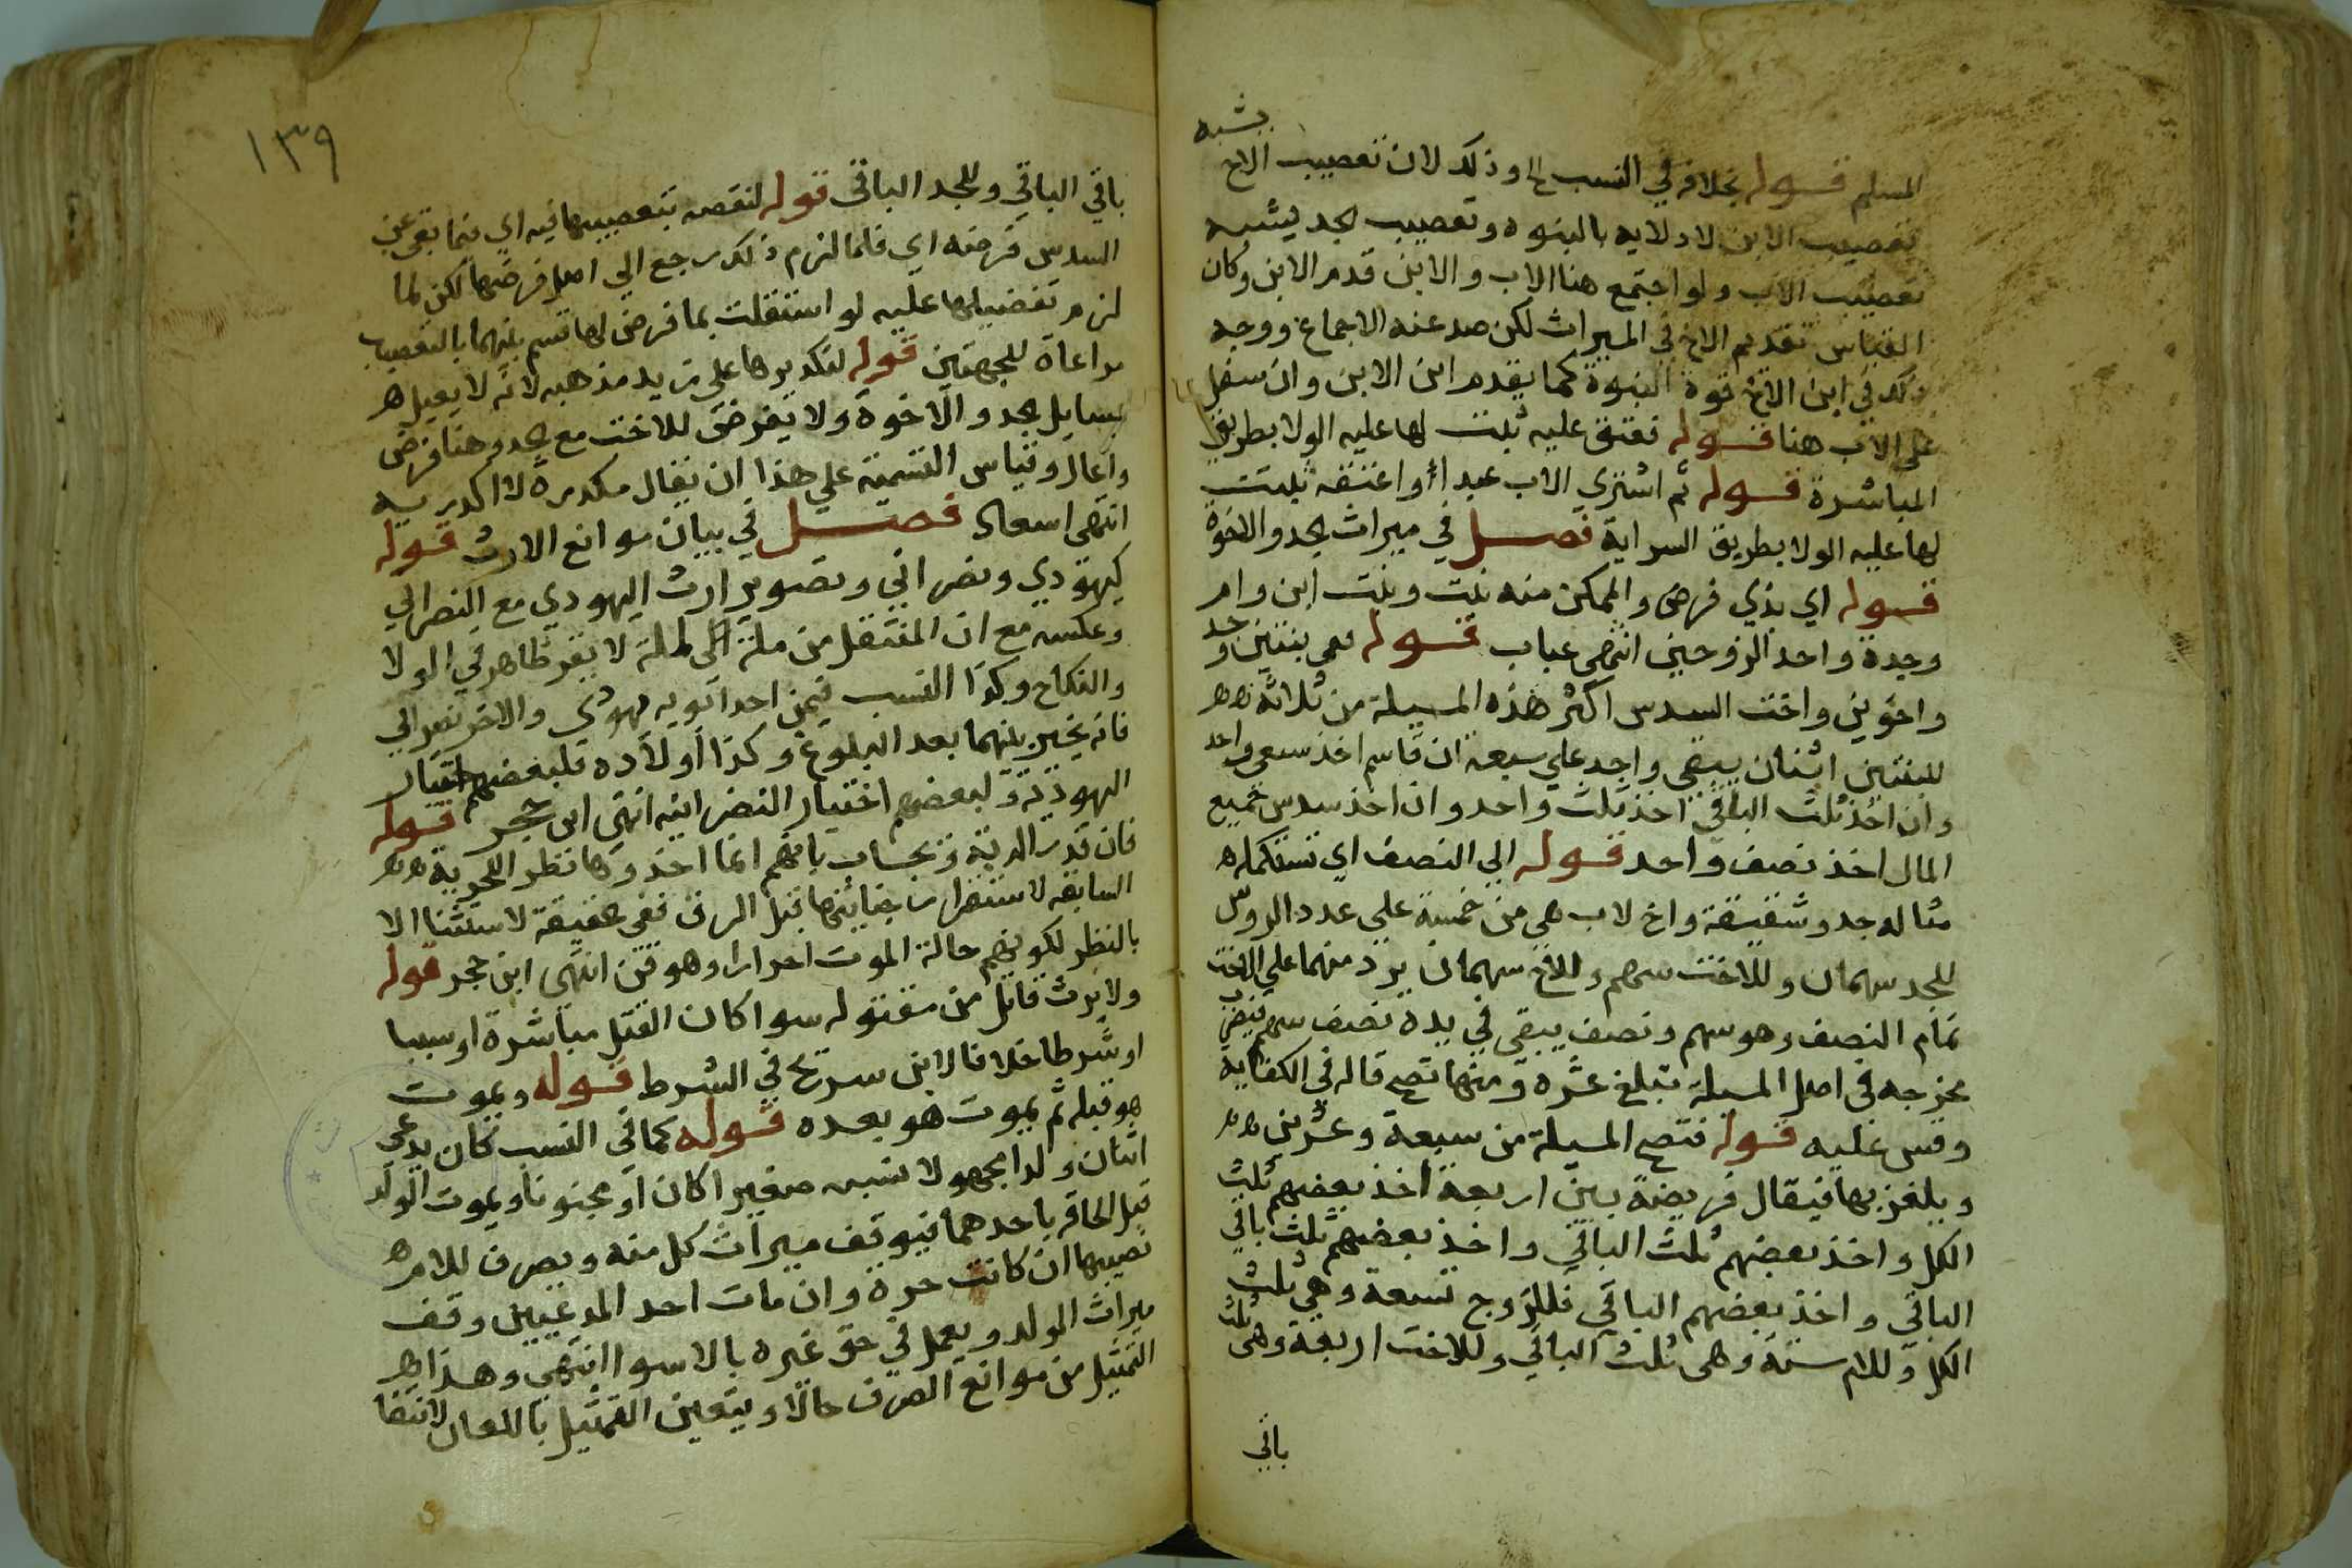 يشبه
المسلم قوله بخلافه في النسب الخ وذلك لان تعصيب الاخ
تعصيب الابن لادلايه بالبنوه وتعصيب الجد يشبه
تعصيب الاب ولو اجتمع هنا الاب والابن قدم الابن وكان
القياس تقديم الاخ في الميراث لكن صد عنه الاجماع ووجه
ذلك في ابن الاخ قوة البنوة كما يقدم ابن الابن وان سفل
على الاب هنا قوله فعتق عليه ثبت لها عليه الولا بطريق
المباشرة قوله ثم اشترى الاب عبدا واعتقه ثبت
لها عليه الولا بطريق السراية فصل في ميراث الجد والاخوة
قوله اي بذي فرض والممكن منه بنت وبنت ابن وام
وجدة واحد الزوجين انتهى عباب قوله ففي بنتين وجد
واخوين واخت السدس اكثر هذه المسيلة من ثلاثة
للبنتين اثنان يبقى واحد علي سبعة ان قاسم اخذ سبعي واحد
وان اخذ ثلث الباقي اخذ ثلث واحد وان اخذ سدس جميع
المال اخذ نصف واحد قوله الي النصف اي تستكمله
مثاله جد وشقيقة واخ لاب هي من خمسة على عدد الروس
للجد سهمان وللاخت سهم وللاخ سهمان يرد منهما علي الاخت
تمام النصف وهو سهم ونصف يبقى في يده نصف سهم فيضرب
مخرجه في اصل المسيلة تبلغ عشره ومنها تصح قاله في الكفاية
وقس عليه قوله فتصح المسيلة من سبعة وعشرين
ويلغز بها فيقال فريضة بين اربعة اخذ بعضهم ثلث
الكل واخذ بعضهم ثلث الباقي واخذ بعضهم ثلث باقي
الباقي واخذ بعضهم الباقي فللزوج تسعة وهي ثلث
الكل وللام ستة وهي ثلث الباقي وللاخت اربعة وهي ثلث
باقي
١٣٩
باقي الباقي وللجد الباقي قوله لنقصه بتعصيبها فيه اي فيما بقي عن
السدس فرضه اي فلما لزم ذلك رجع الي اصل فرضها لكن لما
لزم تفضيلها عليه لو استقلت بما فرض لها قسم بينهما بالتعصيب
مراعاة للجهتين قوله لتكديرها على زيد مذهبه لانه لا يعيل
مسايل الجد والاخوة ولا يفرض للاخت مع الجد وهنا فرض
واعال وقياس التسمية علي هذا ان يقال مكدرة لا اكدرية
انتهى اسعاد فصل في بيان موانع الارث قوله
كيهودي ونصراني وتصوير ارث اليهودي مع النصراني
وعكسه مع ان المنتقل من ملة الى لملة لا يقر ظاهر في الولا
والنكاح وكذا النسب فيمن احد ابويه يهودي والاخر نصراني
فانه يخير بينهما بعد البلوغ وكذا اولاده فلبعضهم اختيار
اليهودية ولبعضهم اختيار النصرانيه انتهى ابن حجر قوله
فان قدر الدية ويجاب بانهم انما اخذوها نظر اللحرية
السابقه لاستقرار جنايتها قبل الرق ففي الحقيقة لا استثنا الا
بالنظر لكونهم حالة الموت احرارا وهو قن انتهى ابن حجر قوله
ولا يرث قاتل من مقتوله سوا كان القتل مباشرة او سببا
او شرطا خلافا لابن سريج في الشرط قوله ويموت
هو قبله ثم يموت هو بعده قوله كما في النسب كان يدعي
اثنان ولدا مجهولا نسبه صغيرا كان او مجنونا ويموت الولد
قبل الحاقه باحدهما فيوقف ميراث كل منه ويصرف للام
نصيبها ان كانت حرة وان مات احد المدعيين وقف
ميراث الولد ويعمل في حق غيره بالاسوا انتهى وهذا
التمثيل من موانع الصرف حالا ويتعين التمثيل باللعان لانتفا